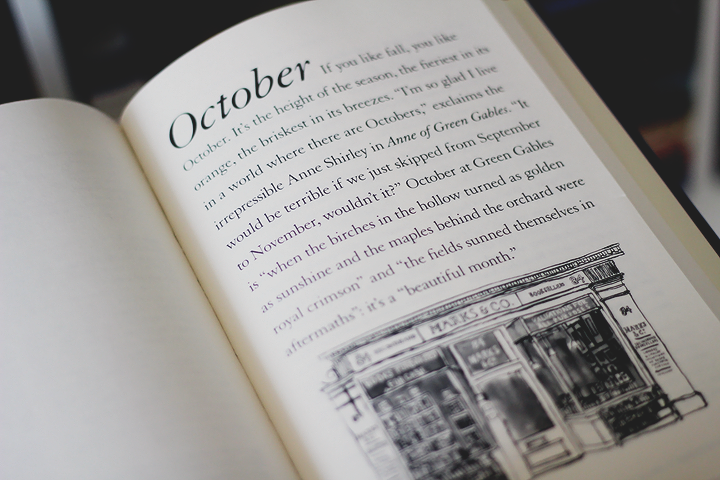 October If you like fall, you like
October. It's the height of the season, the fieriest in its
orange, the briskest in its breezes. "I'm so glad I live
in a world where there are Octobers," exclaims the
irrepressible Anne Shirley in Anne of Green Gables. "It
would be terrible if we just skipped from September
to November, wouldn't it?" October at Green Gables
is "when the birches in the hollow turned as golden
as sunshine and the maples behind the orchard were
royal crimson" and "the fields sunned themselves in
aftermaths": it's a "beautiful month."
84 MARKS & CO. BOOKSELLERS 84
84
MARKS
& Co